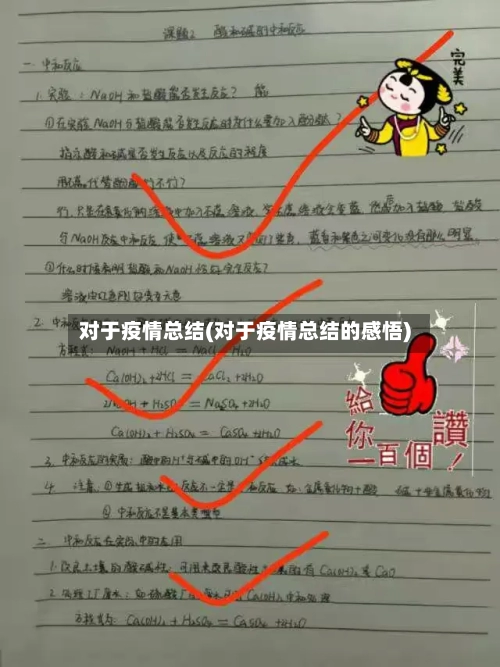 课题2 酸和碱的中和反应
一. 中和反应
完美
1. 实验: NaOH和盐酸能否发生反应? 能
①在实验NaOH与盐酸能否发生反应时为什么要加入酚酞?
指示酸和碱是否发生反应以及反应的程度
用石蕊代替酚酞行不行?
与NaOH反应中和反应
②什么时候表明盐酸和NaOH恰好完全反应?
溶液由红色刚好变为无色
对于疫情总结(对于疫情总结的感悟)
2. 中和反应
方程式: NaOH + HCl = NaCl + H₂O
Ca(OH)₂ + 2HCl = CaCl₂ + 2H₂O
2NaOH + H₂SO₄ = Na₂SO₄ + 2H₂O
Ca(OH)₂ + H₂SO₄ = CaSO₄ + 2H₂O
給你一百個讚!
3. 中和反应的实质: 酸中的H⁺与碱中的OH⁻
4. 注意: ①生成盐和水的反应不一定是中和反应
②中和反应不是基本类型
二. 中和反应在实际中的应用
1. 改良土壤的酸碱性, Ca(OH)₂或CaO
2. 处理工厂废水: 如硫酸厂的废水可用Ca(OH)₂中和处理
方程式为: Ca(OH)₂ + H₂SO₄ = CaSO₄ + 2H₂O